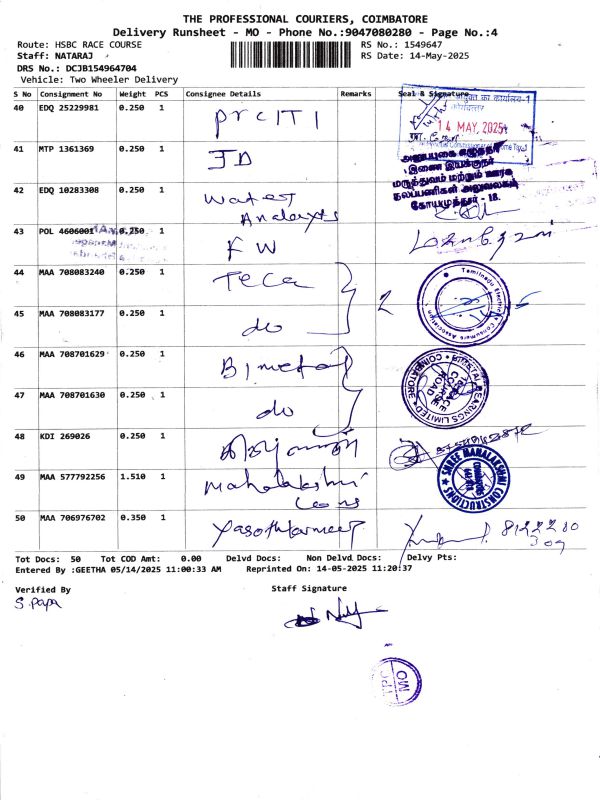 THE PROFESSIONAL COURIERS, COIMBATORE
Delivery Runsheet - MO - Phone No.:9047080280 - Page No.:4
Route: HSBC RACE COURSE
RS No.: 1549647
Staff: NATARAJ
RS Date: 14-May-2025
DRS No.: DCJB154964704
Vehicle: Two Wheeler Delivery
S No Consignment No Weight PCS Consignee Details Remarks Seal & Signature
40 EDQ 25229981 0.250 1 PrCIT 1
14 MAY, 2025
41 MTP 1361369 0.250 1 JD
இணை இயக்குநர்
மருத்துவம் மற்றும் ஊரக
நலப்பணிகள் அலுவலகம்
கோயமுத்தூர் - 18.
42 EDQ 10283308 0.250 1 Water
Analysts
43 POL 4606001 0.250 1 KW
44 MAA 708083240 0.250 1 Teca 2
Tamilnadu Electricity Consumers Association
45 MAA 708083177 0.250 1 do
46 MAA 708701629 0.250 1 Bimetal
BIMETAL BEARINGS LIMITED
RACE COURSE ROAD
COIMBATORE
47 MAA 708701630 0.250 1 do
48 KDI 269026 0.250 1
49 MAA 577792256 1.510 1 Mahalakshmi
Cons
SHREE MAHALAKSHMI CONSTRUCTIONS
50 MAA 706976702 0.350 1 8122280
309
Tot Docs: 50 Tot COD Amt: 0.00 Delvd Docs: Non Delvd Docs: Delvy Pts:
Entered By :GEETHA 05/14/2025 11:00:33 AM Reprinted On: 14-05-2025 11:20:37
Verified By
Staff Signature
S. Papa
OM